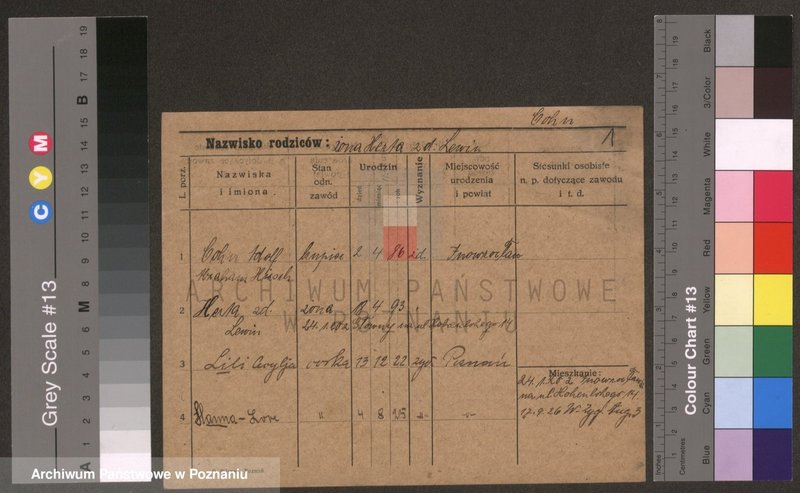 Cohn
1
Nazwisko rodziców: żona Herta z d. Lewin
L. porz.
Nazwiska i imiona
Stan odn. zawód
Urodzin
dzień
miesiąc
rok
Wyznanie
Miejscowość urodzenia i powiat
Stosunki osobiste n. p. dotyczące zawodu i t. d.
1 Cohn Adolf kupiec 2 4 86 żd Inowrocław
Abraham Hirsch
ARCHIWUM PAŃSTWOWE
W POZNANIU
2 Herta z d. żona 4 93
Lewin 24.1.20 z
3 Lili córka 13 12 22 żyd. Poznań
Mieszkanie:
24.1.20 z Inowrocław
na ul Hohenlohego 14
4 Hanna-Lore " 4 8 25 -"- -"-
17.9.26 W. Zyg. Aug. 3
Grey Scale #13
C Y M
A 1 2 3 4 5 6 M 8 9 10 11 12 13 14 15 B 17 18 19
Colour Chart #13
Blue
Cyan
Green
Yellow
Red
Magenta
White
3/Color
Black
Inches
Centimetres
Archiwum Państwowe w Poznaniu